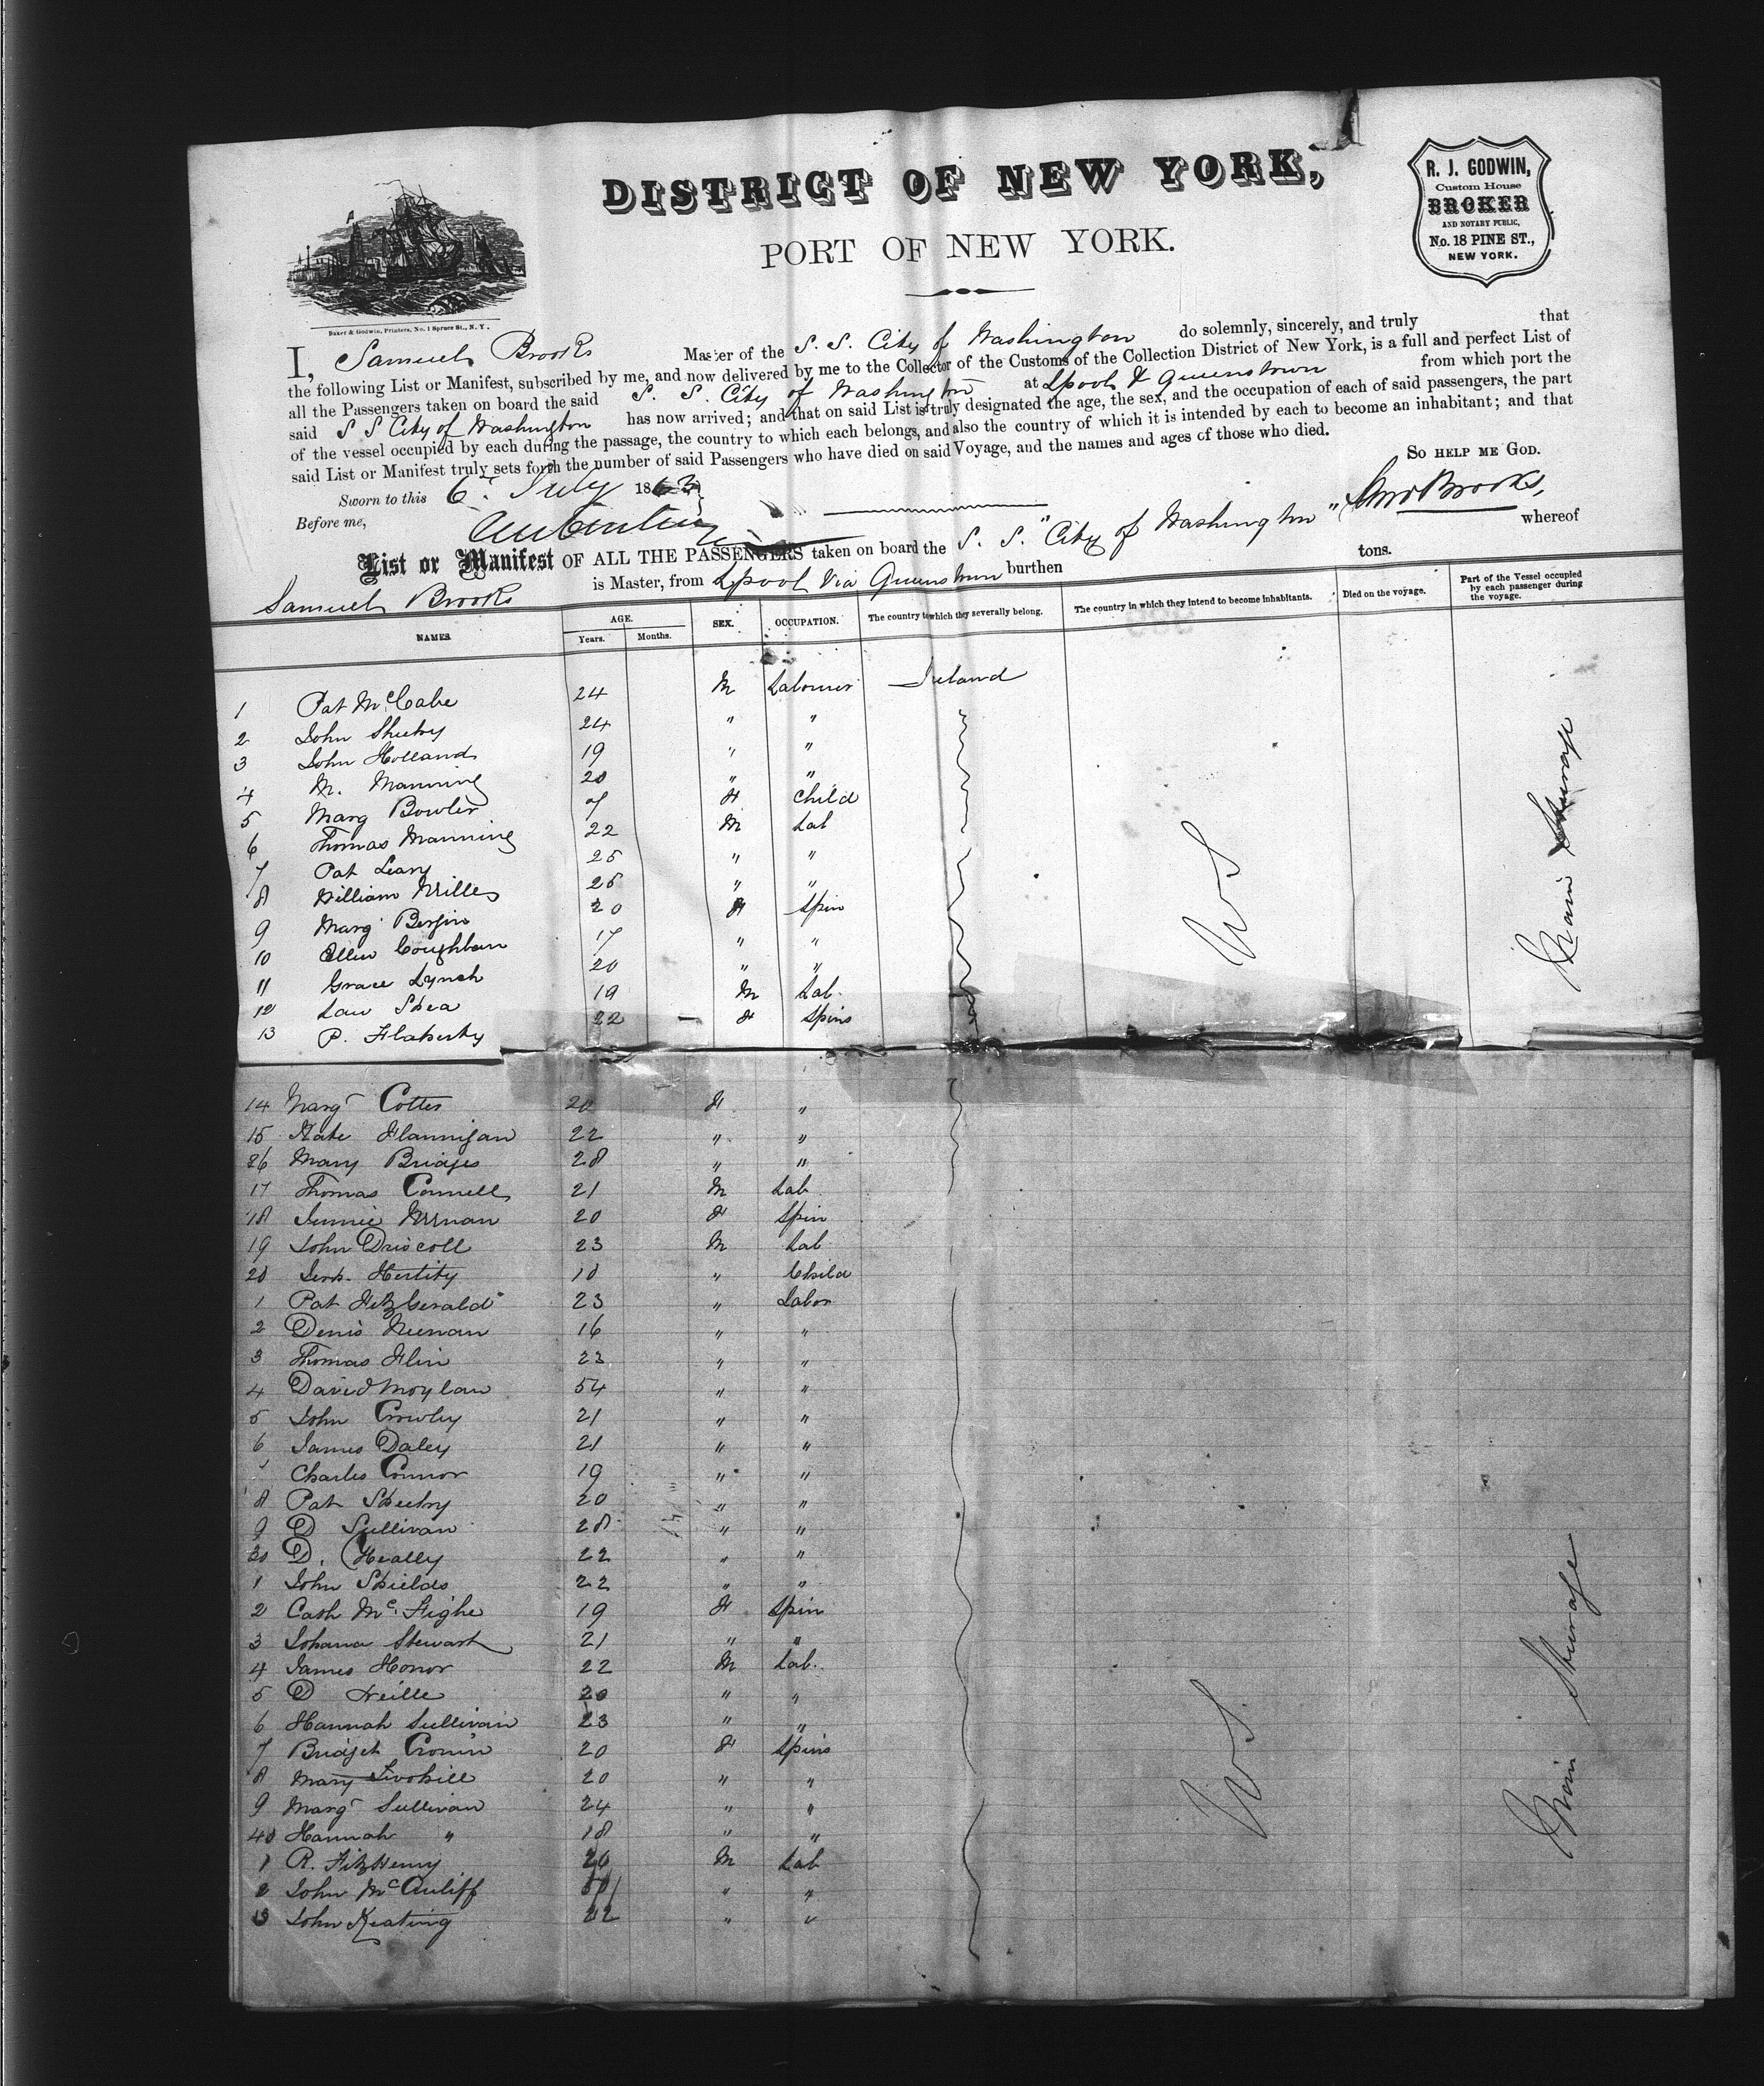 DISTRICT OF NEW YORK,
PORT OF NEW YORK.
R. J. GODWIN,
Custom House
BROKER
AND NOTARY PUBLIC,
No. 18 PINE ST.,
NEW YORK.
Baker & Godwin, Printers, No. 1 Spruce St., N.Y.
I, Samuel Brooks Master of the S. S. City of Washington do solemnly, sincerely, and truly that
the following List or Manifest, subscribed by me, and now delivered by me to the Collector of the Customs of the Collection District of New York, is a full and perfect List of
all the Passengers taken on board the said S. S. City of Washington at Lpool & Queenstown from which port the
said S S City of Washington has now arrived; and that on said List is truly designated the age, the sex, and the occupation of each of said passengers, the part
of the vessel occupied by each during the passage, the country to which each belongs, and also the country of which it is intended by each to become an inhabitant; and that
said List or Manifest truly sets forth the number of said Passengers who have died on said Voyage, and the names and ages of those who died.
SO HELP ME GOD.
Sworn to this 6 July 1863
Before me,
Saml Brooks,
List or Manifest OF ALL THE PASSENGERS taken on board the S. S. "City of Washington" whereof
Samuel Brooks is Master, from Lpool Via Queenstown burthen tons.
NAMES. AGE. Years. Months. SEX. OCCUPATION. The country to which they severally belong. The country in which they intend to become inhabitants. Died on the voyage. Part of the Vessel occupied by each passenger during the voyage.
1 Pat McCabe 24 M Labourer Ireland
2 John Sheehy 24 " "
3 John Holland 19 " "
4 M. Manning 20 " "
5 Marg Bowler 7 F Child
6 Thomas Manning 22 M Lab
7 Pat Leary 25 " "
8 William Mills 25 " "
9 Marg Bergin 20 F Spin
10 Ellen Coughlan 17 " "
11 Grace Lynch 20 " "
12 Law Shea 19 M Lab.
13 P. Flaherty 22 F Spins
US
Main Steerage
14 Margt Cotter 20 F "
15 Kate Flannigan 22 " "
16 Mary Bridges 28 " "
17 Thomas Connell 21 M Lab
18 Jennie 20 F Spin
19 John Driscoll 23 M Lab
20 Hertity 10 " Child
1 Pat FitzGerald 23 " Labor
2 Denis Neenan 16 " "
3 Thomas Flin 23 " "
4 David Moylan 54 " "
5 John Crowley 21 " "
6 James Daley 21 " "
Charles Connor 19 " "
8 Pat Sheehy 20 " "
9 D Sullivan 28 " "
30 D. Heally 22 " "
1 John Shields 22 " "
2 Cath McTighe 19 F Spin
3 Johana Stewart 21 " "
4 James Honor 22 M Lab.
5 D Neille 20 " "
6 Hannah Sullivan 23 " "
7 Bridget Cronin 20 F Spins
8 Mary Twohill 20 " "
9 Margt Sullivan 24 " "
40 Hannah " 18 " "
1 R. FitzHenry 20 M Lab
2 John McAuliff " "
3 John Keating 22 " "
US
Main Steerage